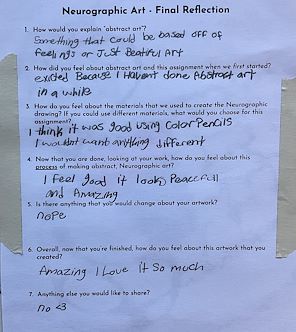 Neurographic Art - Final Reflection
1. How would you explain "abstract art"?
Something that could be based off of
feelings or Just Beatiful Art
2. How did you feel about abstract art and this assignment when we first started?
exicted Because I Havent done Abstract art
in a while
3. How do you feel about the materials that we used to create the Neurographic
drawing? If you could use different materials, what would you choose for this
assignment?
I think it was good using Color Pencils
I wouldnt want anything different
4. Now that you are done, looking at your work, how do you feel about this
process of making abstract, Neurographic art?
I feel good it looks Peacefull
and Amazing
5. Is there anything that you would change about your artwork?
nope
6. Overall, now that you're finished, how do you feel about this artwork that you
created?
Amazing I Love it So much
7. Anything else you would like to share?
no <3